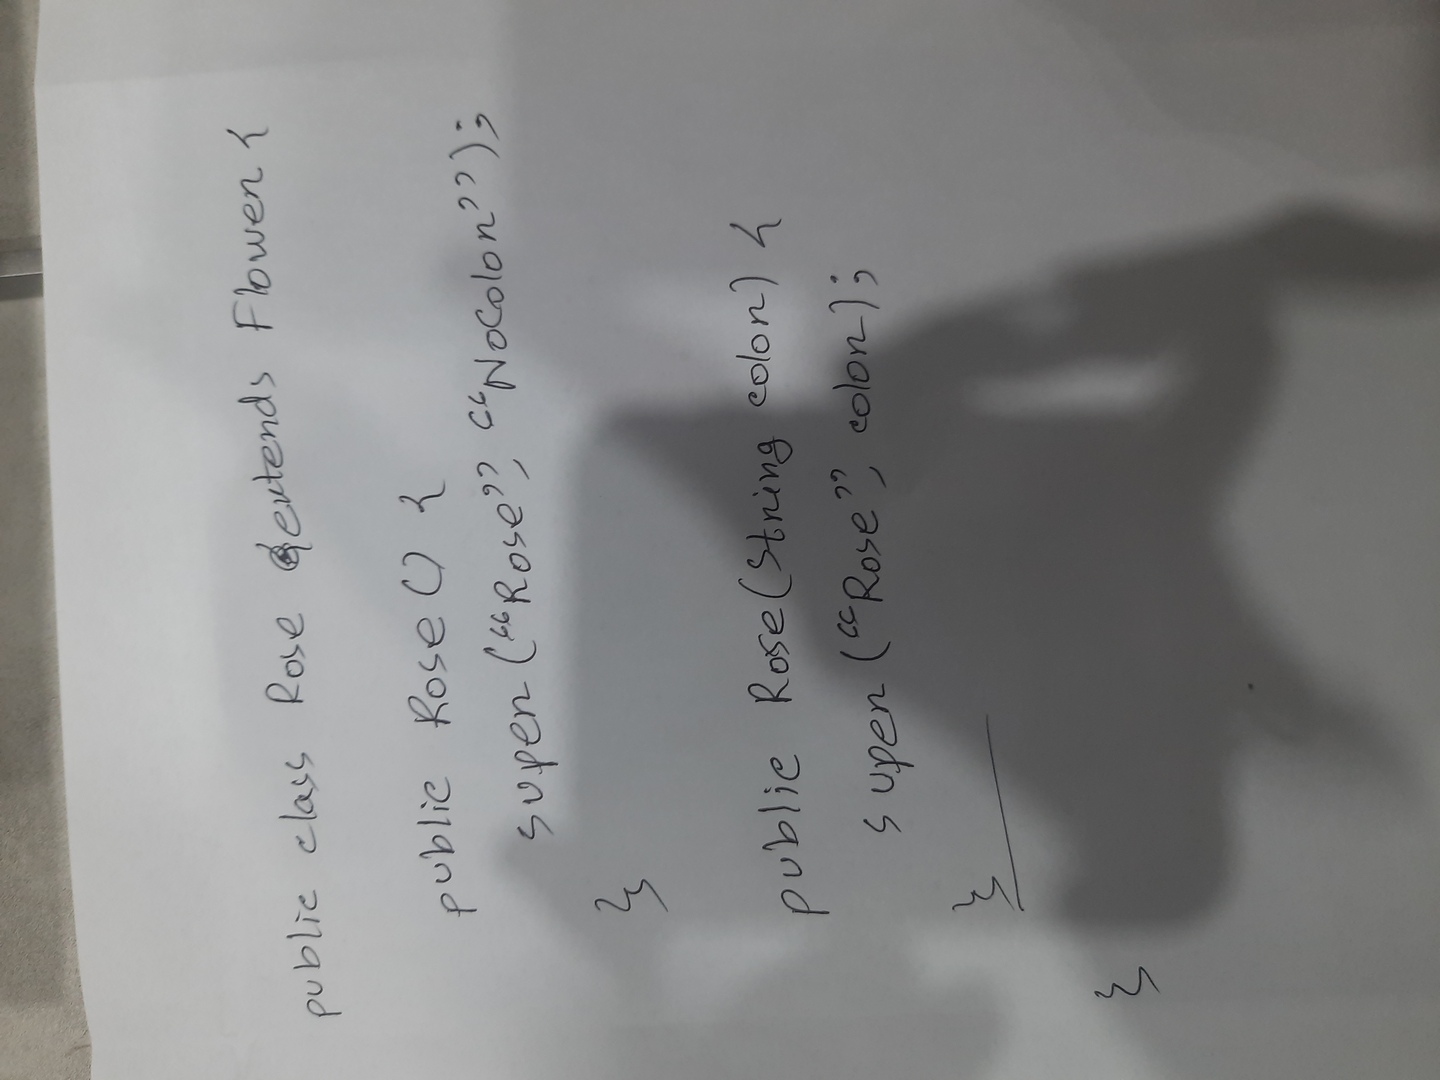 public class Rose extends Flower {
public Rose () {
super ("Rose", "NoColor");
}
public Rose (String color) {
super ("Rose", color);
}
}